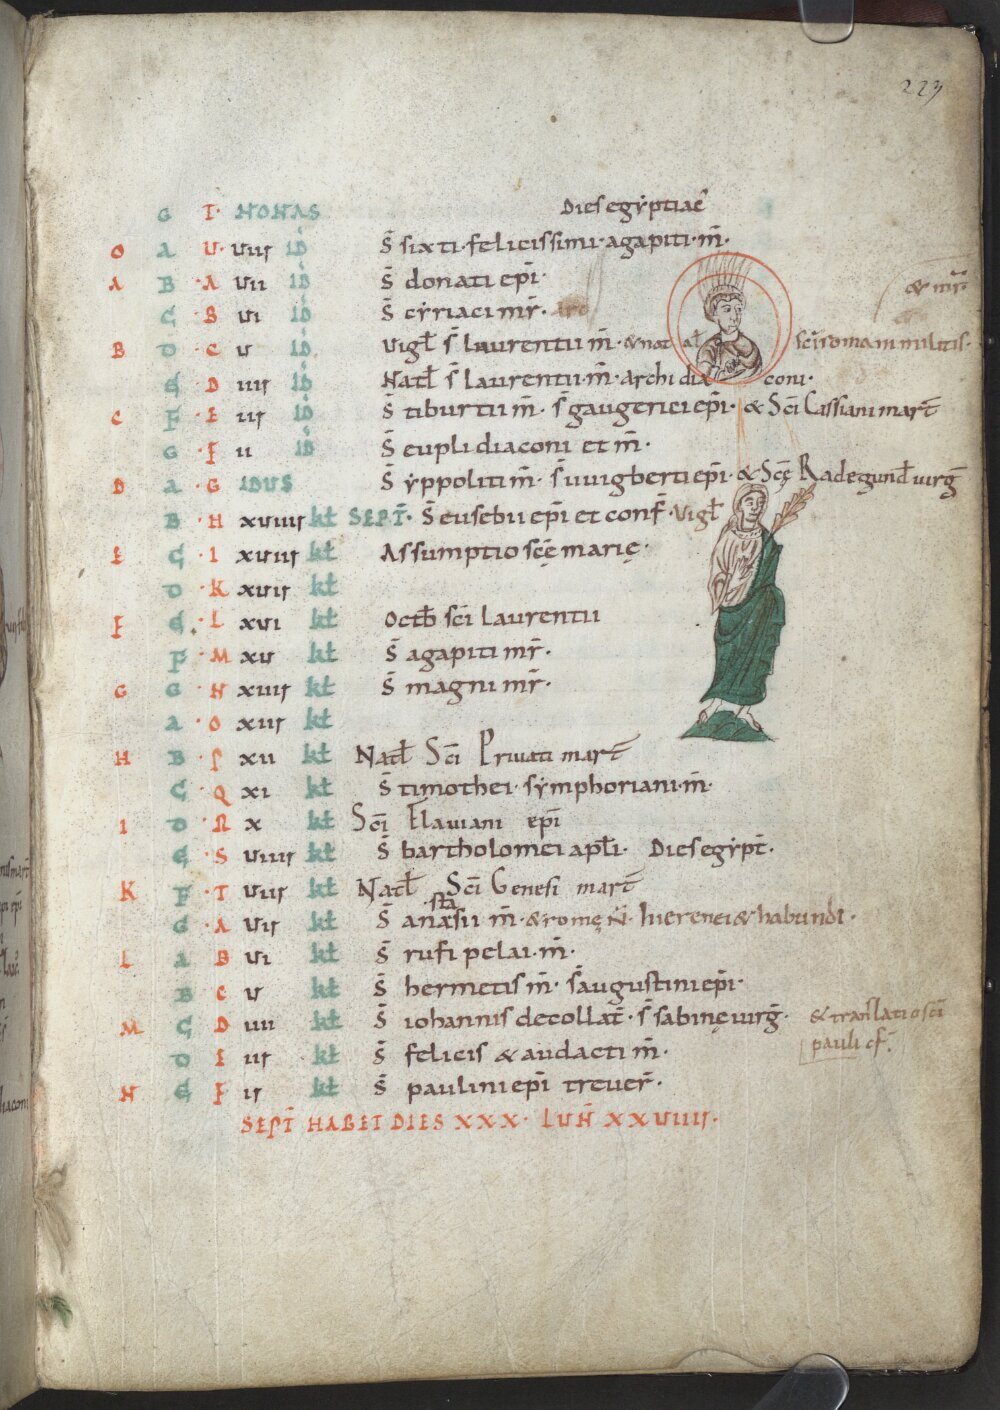 223
G T· NONAS Dies egyptiac̄
O A U· uiii iđ S̄ sixti· felicissimi· agapiti· m̄·
A B ·A uii iđ S̄ donati ep̄i·
& mr̄·
C ·B ui iđ S̄ cyriaci mr̄·
B D ·C u iđ Uigł s̄ laurentii m̄· & nat ał sc̄i romani militis·
E ·D iiii iđ Natł s̄ laurentii· m̄· archi dia coni·
C F ·E iii iđ S̄ tiburtii m̄· s̄ gaugerici ep̄i· & Sc̄i Cassiani mart̄
G ·F ii iđ S̄ eupli diaconi et m̄·
D A ·G IDUS S̄ yppoliti m̄· s̄ uuigberti ep̄i· & Sc̄ę Radegund̄ uirḡ
B ·H xuiiii kł SEPT̄· S̄ eusebii ep̄i et conf̄· Uigł
E C ·I xuiii kł Assumptio sc̄ę marię·
D ·K xuii kł
F E ·L xui kł Octb̄ sc̄i laurentii
F ·M xu kł S̄ agapiti mr̄·
G G ·N xiiii kł S̄ magni mr̄·
A ·O xiii kł
H B ·P xii kł Natł Sc̄i Priuati mart̄
C ·Q xi kł S̄ timothei· symphoriani· m̄·
I D ·R x kł Sc̄i Flauiani ep̄i
E ·S uiiii kł S̄ bartholomei apłi· Dies egypt̄·
K F ·T uiii kł Natł Sc̄i Genesi mart̄
sta
G ·A uii kł S̄ anasii m̄· & romę N̄· hierenei & habundi·
L A B ui kł S̄ rufi pelai· m̄·
B C u kł S̄ hermetis m̄· s̄ augustini ep̄i·
M C D iiii kł S̄ iohannis decollat̄· s̄ sabinę uirḡ· & translatio sc̄i
pauli cf̄·
D E iii kł S̄ felicis & audacti m̄·
N E F ii kł S̄ paulini ep̄i treuer̄·
SEPT̄ HABET DIES XXX· LUN̄ XXUIIII·